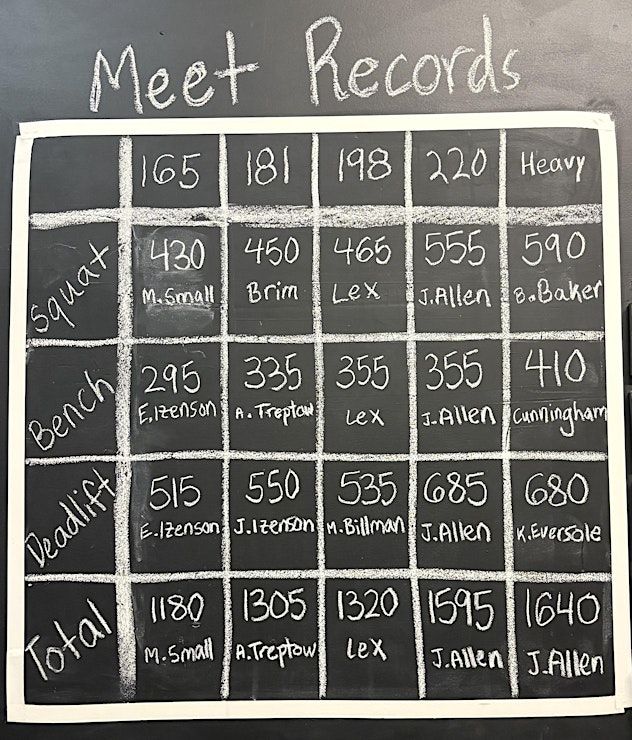 Meet Records
165 181 198 220 Heavy
Squat 430 450 465 555 590
M.Small Brim Lex J.Allen B.Baker
Bench 295 335 355 355 410
E.Izenson A.Treptow Lex J.Allen Cunningham
Deadlift 515 550 535 685 680
E.Izenson J.Izenson M.Billman J.Allen K.Eversole
Total 1180 1305 1320 1595 1640
M.Small A.Treptow Lex J.Allen J.Allen